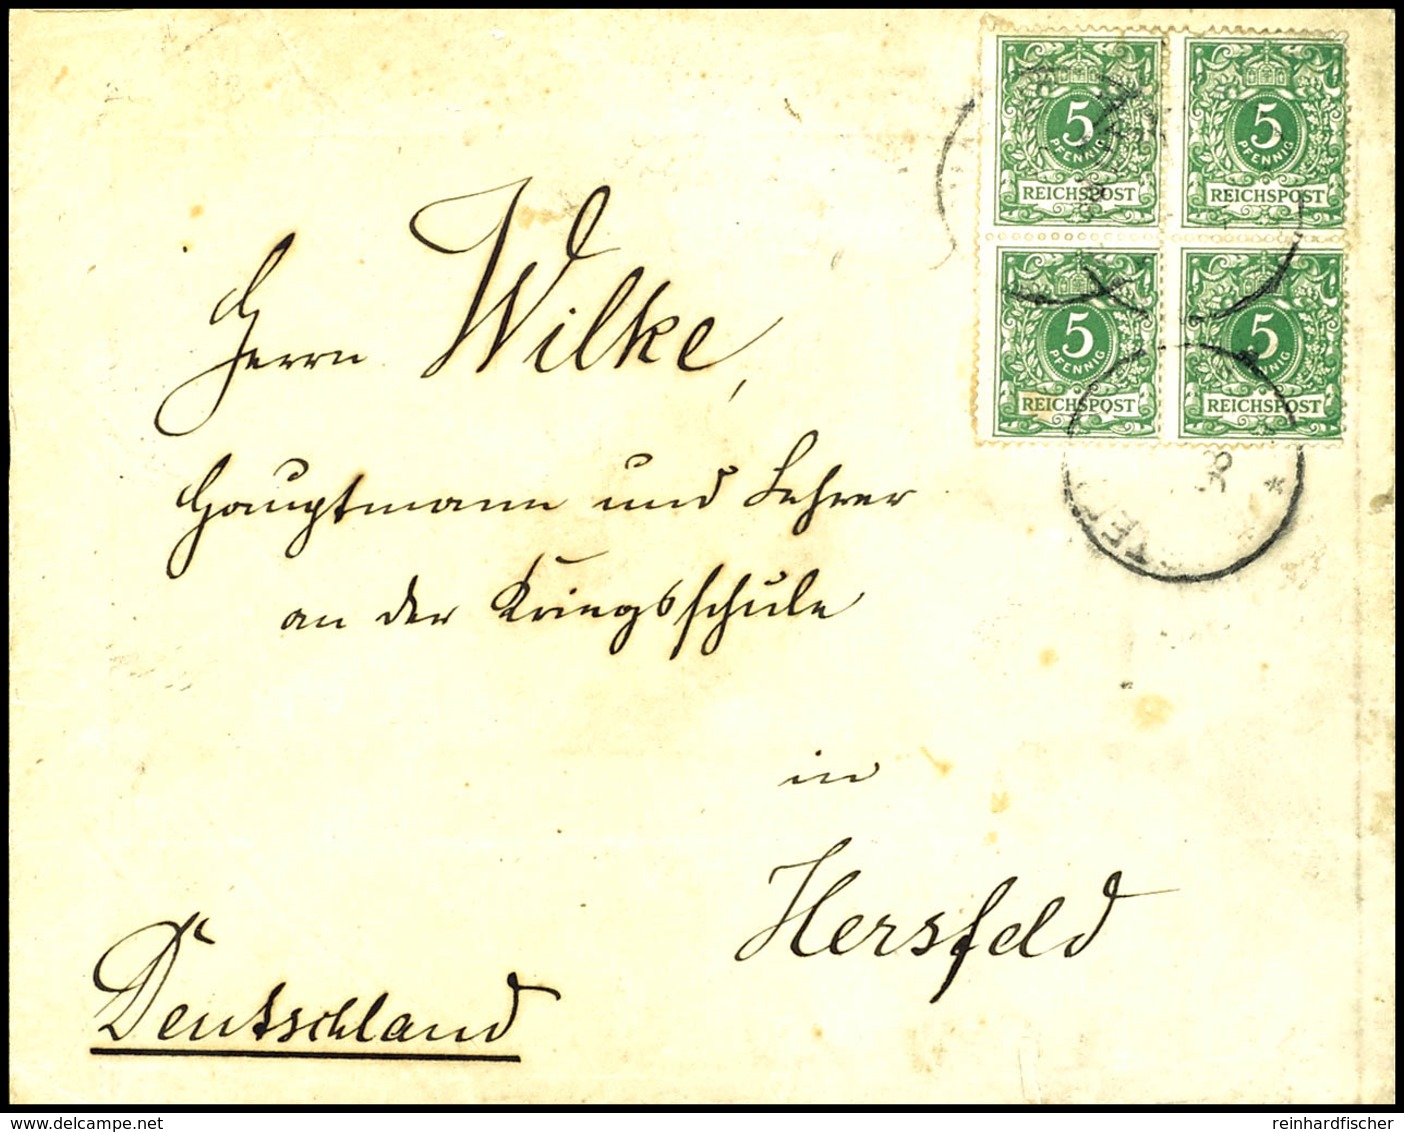 5
PFENNIG
REICHSPOST
5
PFENNIG
REICHSPOST
5
PFENNIG
REICHSPOST
5
PFENNIG
REICHSPOST
Herrn Wilke,
Hauptmann und Lehrer
an der Kriegsschule
in
Hersfeld
Deutschland
www.delcampe.net
reinhardfischer